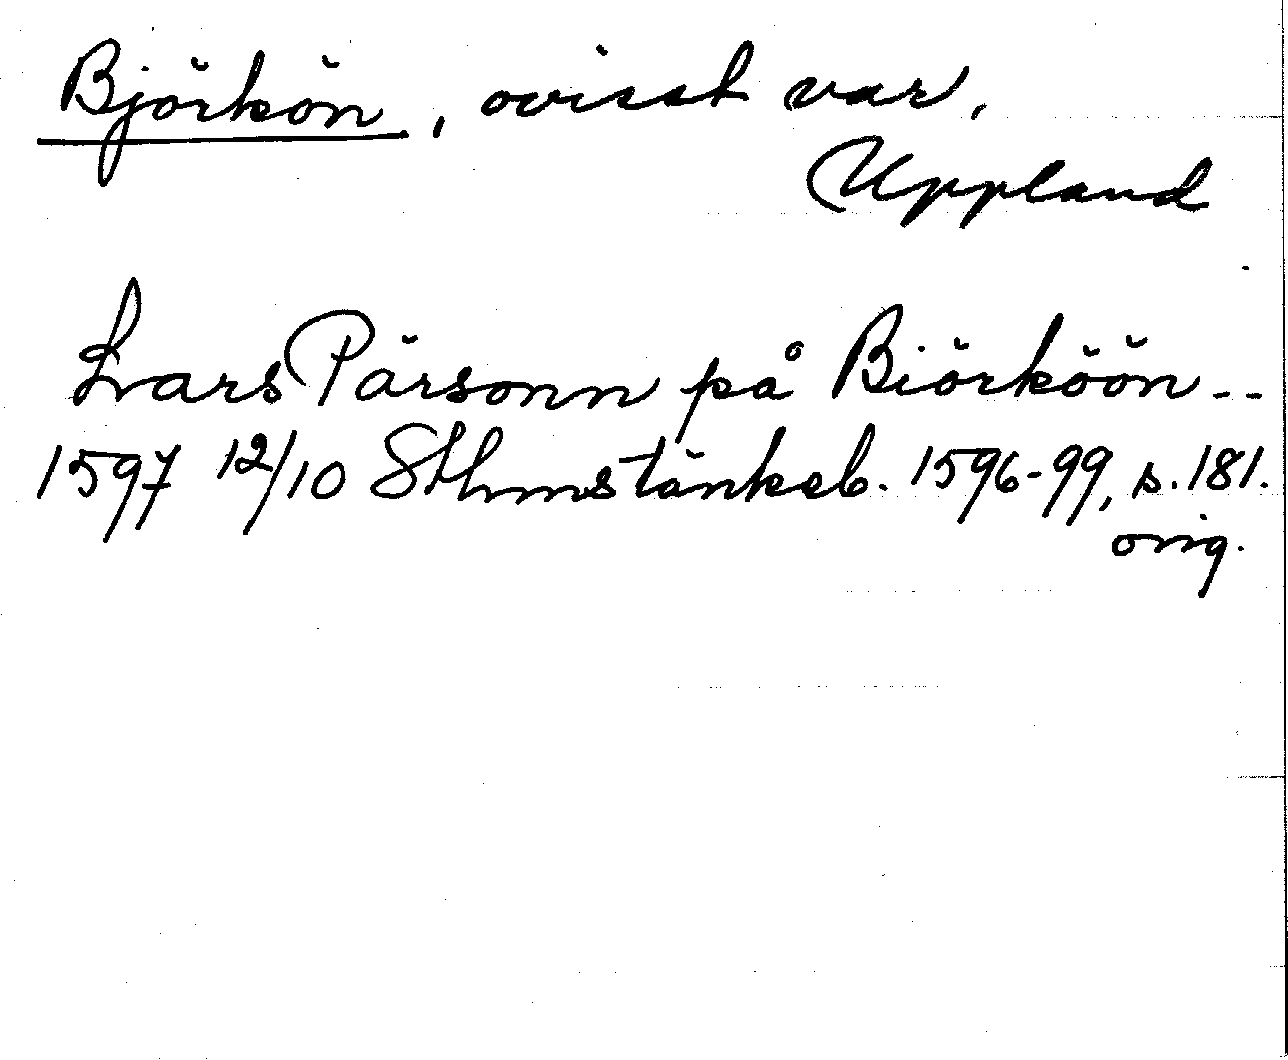 Björkön, ovisst var,
Uppland
Lars Pärsonn på Biörköön --
1597 12/10 Sthmstänkeb. 1596-99, s. 181.
orig.